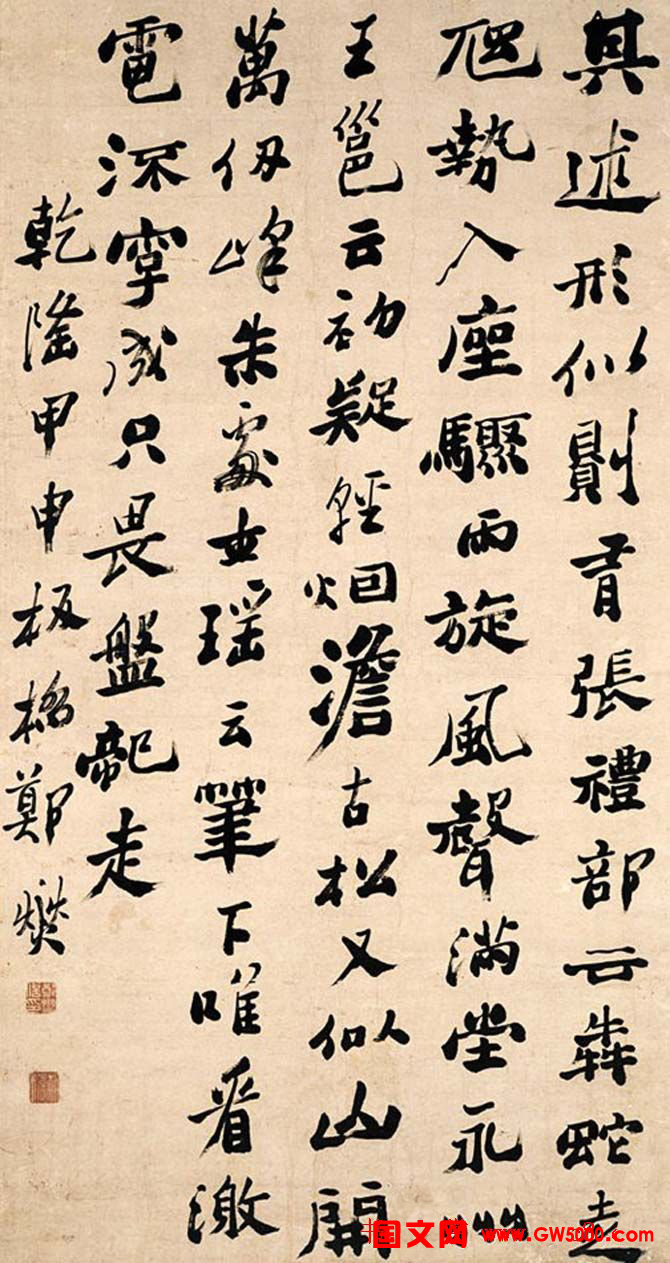 其述形似則有張禮部云犇蛇走
虺勢入座驟雨旋風聲滿堂永州
王邕云初疑輕烟澹古松又似山開
萬仞峰朱處士瑶云筆下唯看激
電流字成只畏盤龍走
乾隆甲申板橋鄭燮
国文网 www.GW5000.com